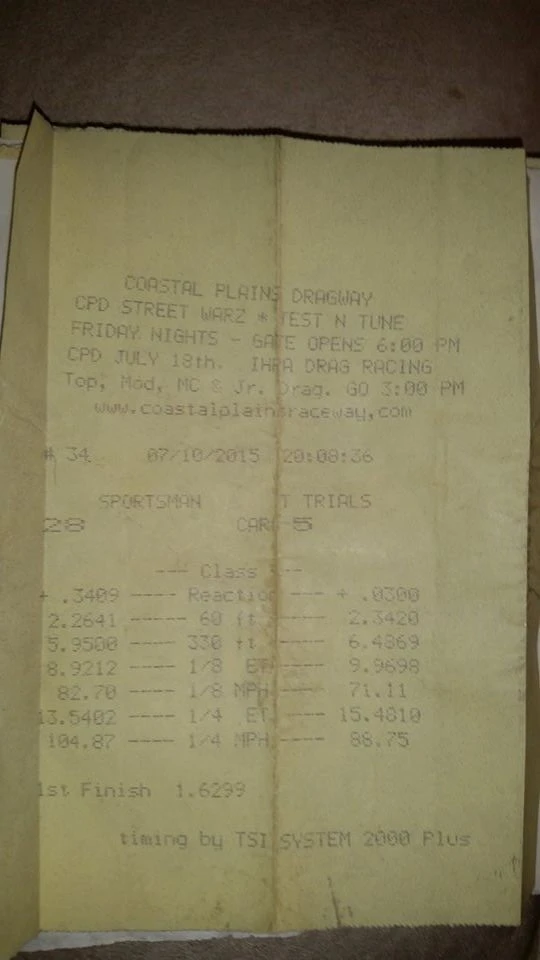 COASTAL PLAINS DRAGWAY
CPD STREET WARZ * TEST N TUNE
FRIDAY NIGHTS - GATE OPENS 6:00 PM
CPD JULY 18th. IHRA DRAG RACING
Top, Mod, MC & Jr. Drag. GO 3:00 PM
www.coastalplainsraceway,com
# 34 07/10/2015 20:08:36
SPORTSMAN T TRIALS
28 CAR 5
--- Class ---
+ .3409 ---- Reaction ---- + .0300
2.2641 ---- 60 ft ---- 2.3420
5.9500 ---- 330 ft ---- 6.4869
8.9212 ---- 1/8 ET ---- 9.9698
82.70 ---- 1/8 MPH ---- 71.11
13.5402 ---- 1/4 ET ---- 15.4810
104.87 ---- 1/4 MPH ---- 88.75
1st Finish 1.6299
timing by TSI SYSTEM 2000 Plus